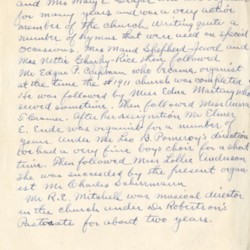 and Miss Mary E. Draper
for many years and was a very active
member of the church, writing quite a
number of hymns that were used on special
occasions. Miss Maud Shepherd-Jewel and
Mrs Nettie Charity-Rice then followed.
Mr Edgar F. Chapman who became organist
at the time the 1911 church was completed.
He was followed by Miss Edna Masting who
served sometime. Then followed Miss Anna
E. After her resignation Mr Elmer
E. Ende was organist for a number of
years. Under Mr Leo B. Pomeroy's direction
we had a very fine boys choir for a short
time. Then followed Miss Lollie Anderson
She was succeeded by the present organ-
ist Mr Charles
Mr R.E. Mitchell was musical director
in the church under Dr Robertson's
Pastorate for about two years.